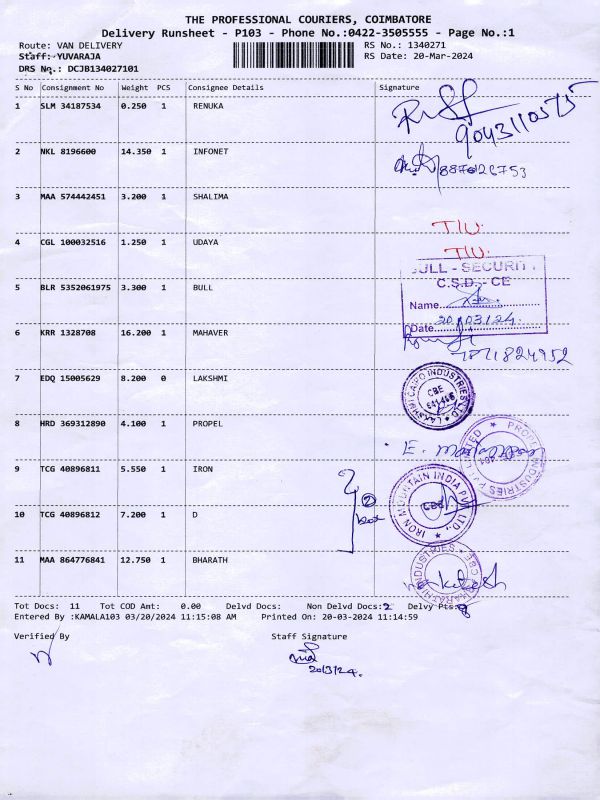 THE PROFESSIONAL COURIERS, COIMBATORE
Delivery Runsheet - P103 - Phone No.:0422-3505555 - Page No.:1
Route: VAN DELIVERY RS No.: 1340271
Staff: YUVARAJA RS Date: 20-Mar-2024
DRS No.: DCJB134027101
S No Consignment No Weight PCS Consignee Details Signature
1 SLM 34187534 0.250 1 RENUKA
9043110575
2 NKL 8196600 14.350 1 INFONET
3 MAA 574442451 3.200 1 SHALIMA
TIU
4 CGL 100032516 1.250 1 UDAYA
TIU
BULL - SECURITY
C.S.D. - CE
5 BLR 5352061975 3.300 1 BULL
Name
Date 20/03/24
6 KRR 1328708 16.200 1 MAHAVER
7871824952
7 EDQ 15005629 8.200 0 LAKSHMI
CBE
8 HRD 369312890 4.100 1 PROPEL
9 TCG 40896811 5.550 1 IRON
IRON MOUNTAIN INDIA PVT. LTD.,
2
10 TCG 40896812 7.200 1 D
11 MAA 864776841 12.750 1 BHARATH
Tot Docs: 11 Tot COD Amt: 0.00 Delvd Docs: Non Delvd Docs:2 Delvy Pts:8
Entered By :KAMALA103 03/20/2024 11:15:08 AM Printed On: 20-03-2024 11:14:59
Verified By Staff Signature
20/3/24.